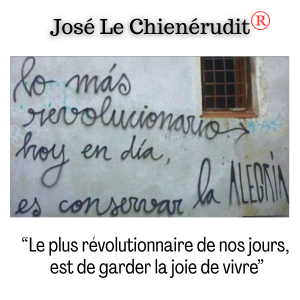 José Le Chienérudit®
lo más
revolucionario
hoy en día,
es conservar la ALEGRÍA
“Le plus révolutionnaire de nos jours,
est de garder la joie de vivre”